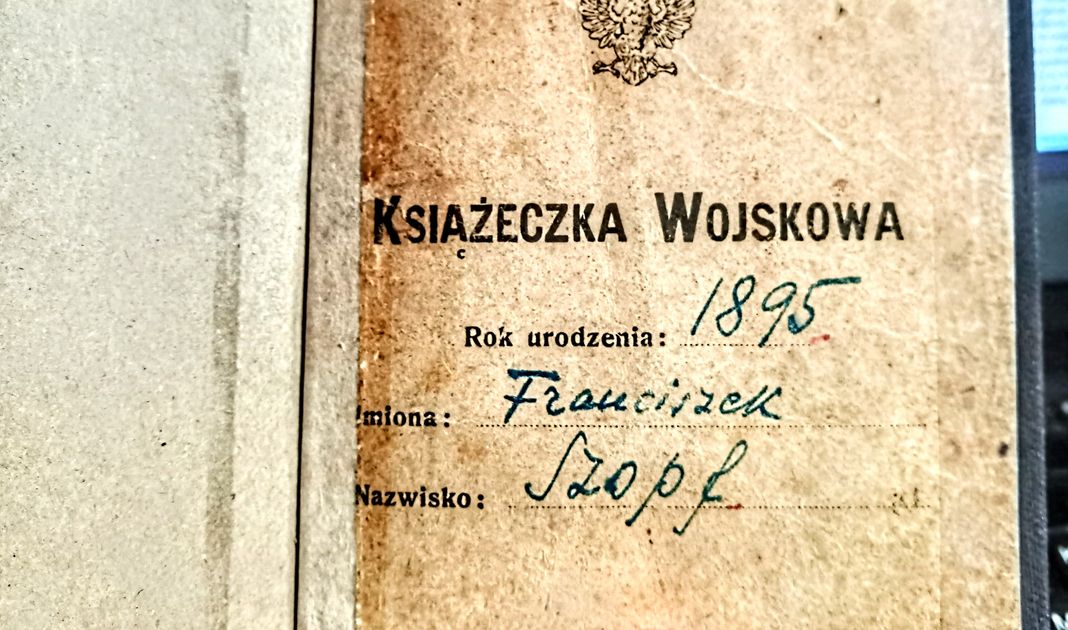 KSIĄŻECZKA WOJSKOWA
Rok urodzenia: 1895
Imiona: Franciszek
Nazwisko: Szopf